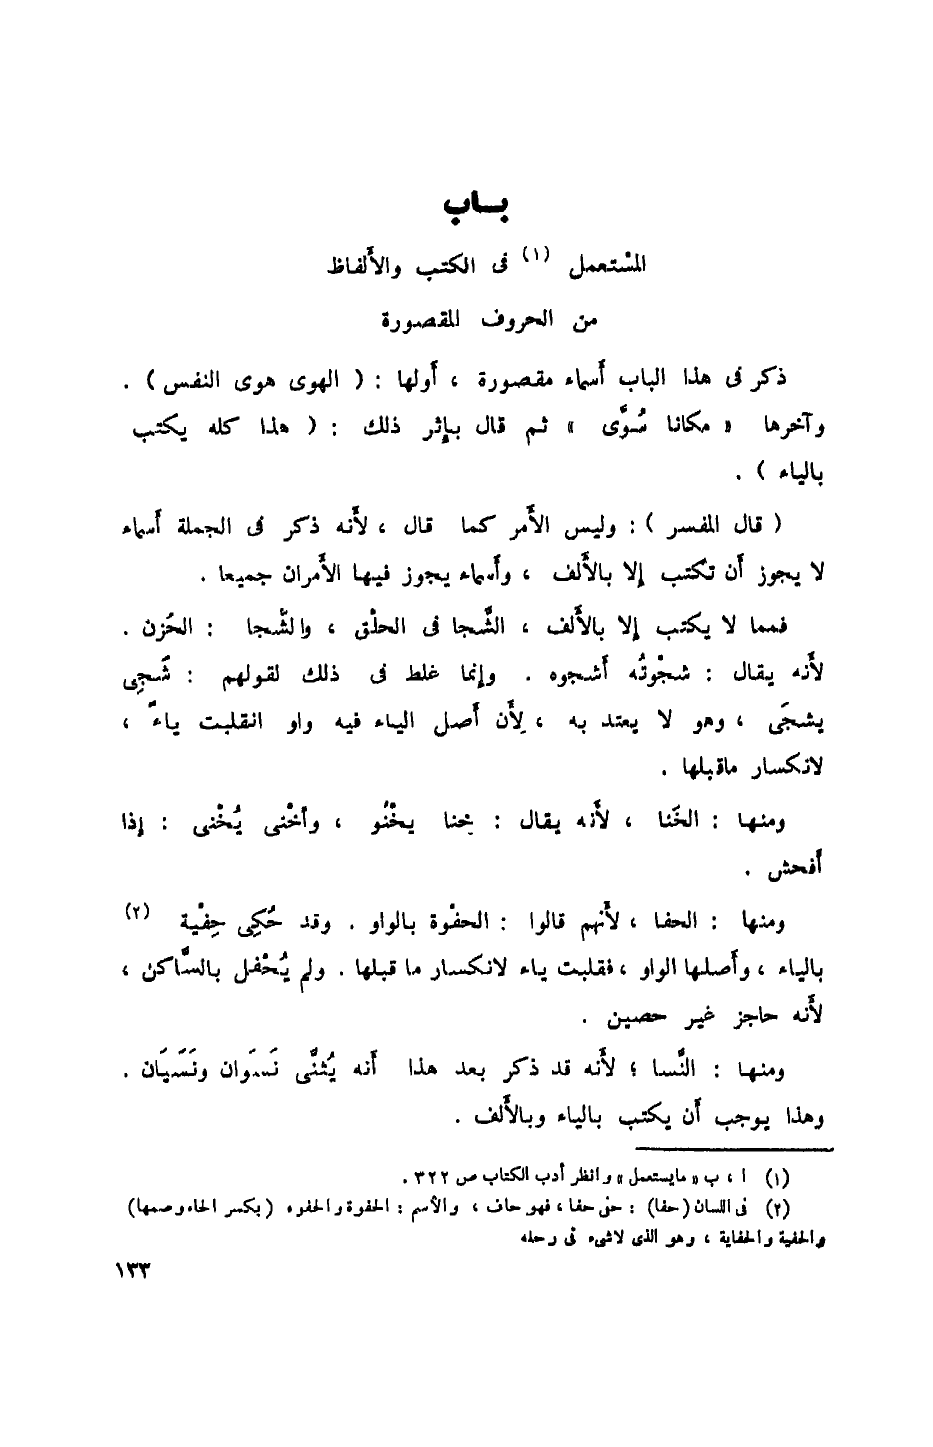 بـــاب
المسْتعمل (١) فى الكتب والأَلفاظ
من الحروف المقصورة
ذكر فى هذا الباب أَسماء مقصورة ، أَولها : ( الهوى هوى النفس ) .
وآخرها « مكانا سُوًى » ثم قال بإِثر ذلك : ( هذا كله يكتب
بالياء ) .
( قال المفسر ) : وليس الأَمر كما قال ، لأَنه ذكر فى الجملة أَسماء
لا يجوز أَن تكتب إِلا بالأَلف ، وأَسماء يجوز فيها الأَمران جميعا .
فمما لا يكتب إِلا بالأَلف ، الشَّجا فى الحلْق ، والشَّجا : الحُزن .
لأَنه يقال : شجوْتُه أَشجوه . وإِنما غلط فى ذلك لقولهم : شَجِى
يشجَى ، وهو لا يعتد به ، لِأَن أَصل الياء فيه واو انقلبت ياءً ،
لانكسار ماقبلها .
ومنها : الخَنا ، لأَنه يقال : خنا يخْنُو ، وأَخْنى يُخْنى : إِذا
أَفحش .
ومنها : الحفا ، لأَنهم قالوا : الحفْوة بالواو . وقد حُكِى حِفْية (٢)
بالياء ، وأَصلها الواو ، فقلبت ياء لانكسار ما قبلها . ولم يُحْفل بالسَّاكن ،
لأَنه حاجز غير حصين .
ومنها : النَّسا ؛ لأَنه قد ذكر بعد هذا أَنه يُثنَّى نَسَوان ونَسَيَان .
وهذا يوجب أَن يكتب بالياء وبالأَلف .
(١) ا ، ب « مايستعمل » وانظر أدب الكتاب ص ٣٢٢ .
(٢) فى اللسان (حفا) : حفى حفا ، فهو حاف ، والأسم : الحفوة والحفوه (بكسر الحاء وضمها)
والحفية والحفاية ، وهو الذى لاشىء فى رحله
١٣٣